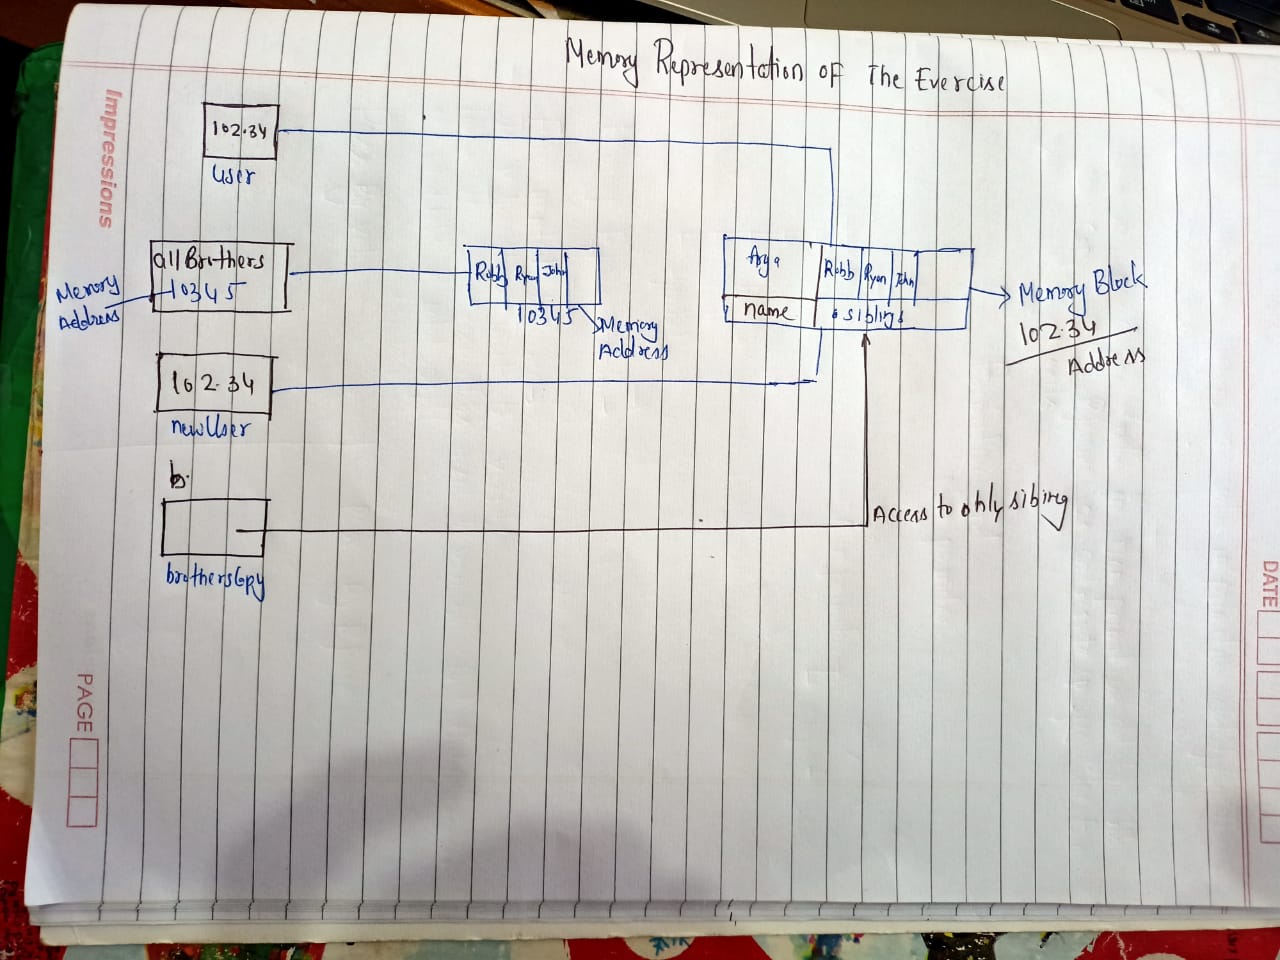 Memory Representation of The Exercise
Impressions
102.34
user
allBrothers
10345
Memory
Address
Robb Ryan John
10345
Memory
Address
Arya Robb Ryan John
name sibling
Memory Block
102.34
Address
102.34
newUser
b.
Access to only sibing
brothersCopy
PAGE
DATE